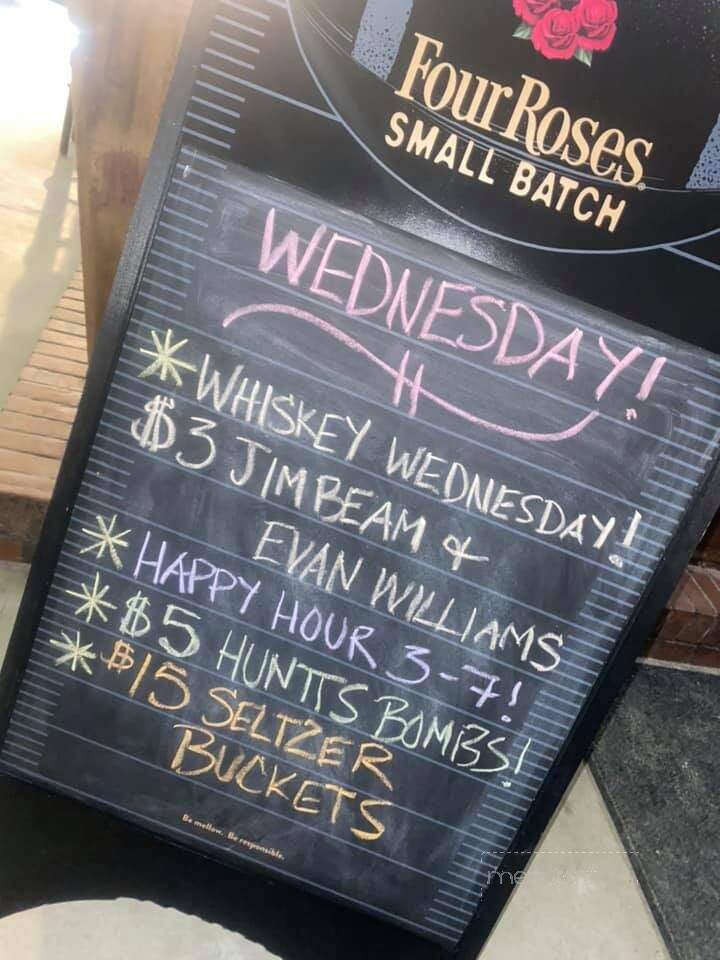 Four Roses
SMALL BATCH
WEDNESDAY!
* WHISKEY WEDNESDAY!
$3 JIM BEAM &
EVAN WILLIAMS
* HAPPY HOUR 3-7!
* $5 HUNTTS BOMBS!
* $15 SELTZER
BUCKETS
Be mellow. Be responsible.